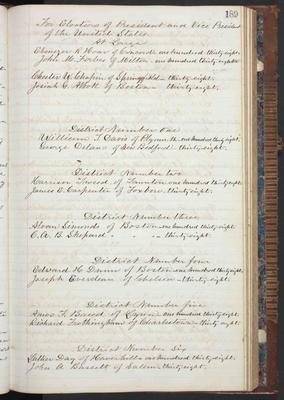 189
For Electors of President and Vice President
of the United States.
At Large
Ebenezer R Hoar of Concord one hundred thirty eight.
John M. Forbes of Milton one hundred thirty eight.
Chester W. Chapin of Springfield — thirty eight.
Josiah G. Abbott of Boston — thirty eight.
District Number One
William T. Davis of Plymouth one hundred thirty eight.
George Delano of New Bedford — thirty eight.
District Number two
Harrison Tweed of Taunton one hundred thirty eight.
James E. Carpenter of Foxboro thirty eight.
District Number three
Alvan Simonds of Boston one hundred thirty eight.
C. A. B. Shepard " " — thirty eight.
District Number four
Edward H. Dunn of Boston one hundred thirty eight.
Joseph of Chelsea — thirty eight.
District Number five
Amos F. Breed of Lynn one hundred thirty eight.
Richard Frothingham of Charlestown — thirty eight.
District Number Six
Luther Day of Haverhill one hundred thirty eight.
John A. Bassett of Salem thirty eight.